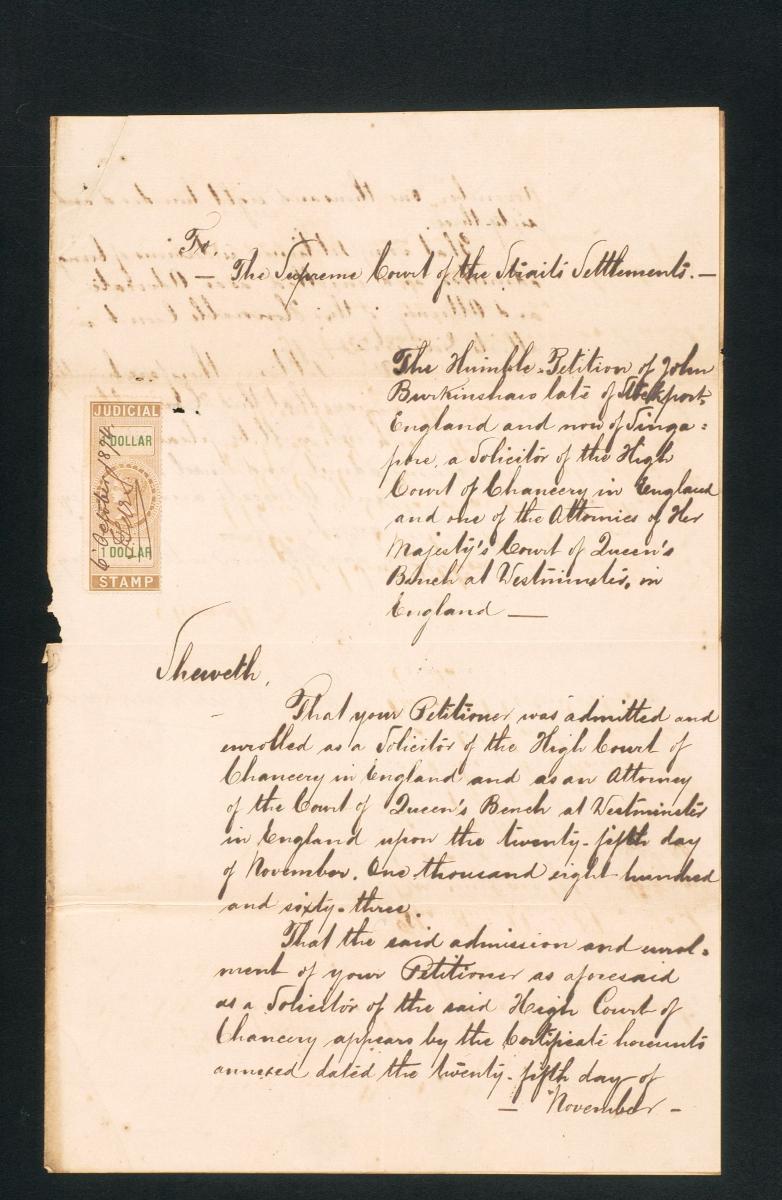 To,
— The Supreme Court of the Straits Settlements. —
The Humble Petition of John
Burkinshaw late of Stockport,
England and now of Singa=
pore, a Solicitor of the High
Court of Chancery in England
and one of the Attornies of Her
Majesty's Court of Queen's
Bench at Westminster, in
England —
JUDICIAL
1 DOLLAR
6 October 1874.
1 DOLLAR
STAMP
Sheweth,
That your Petitioner was admitted and
enrolled as a Solicitor of the High Court of
Chancery in England and as an Attorney
of the Court of Queen's Bench at Westminster
in England upon the twenty-fifth day
of November, One thousand eight hundred
and sixty-three.
That the said admission and enrol-
ment of your Petitioner as aforesaid
as a Solicitor of the said High Court of
Chancery appears by the Certificate hereunto
annexed dated the twenty-fifth day of
— November —